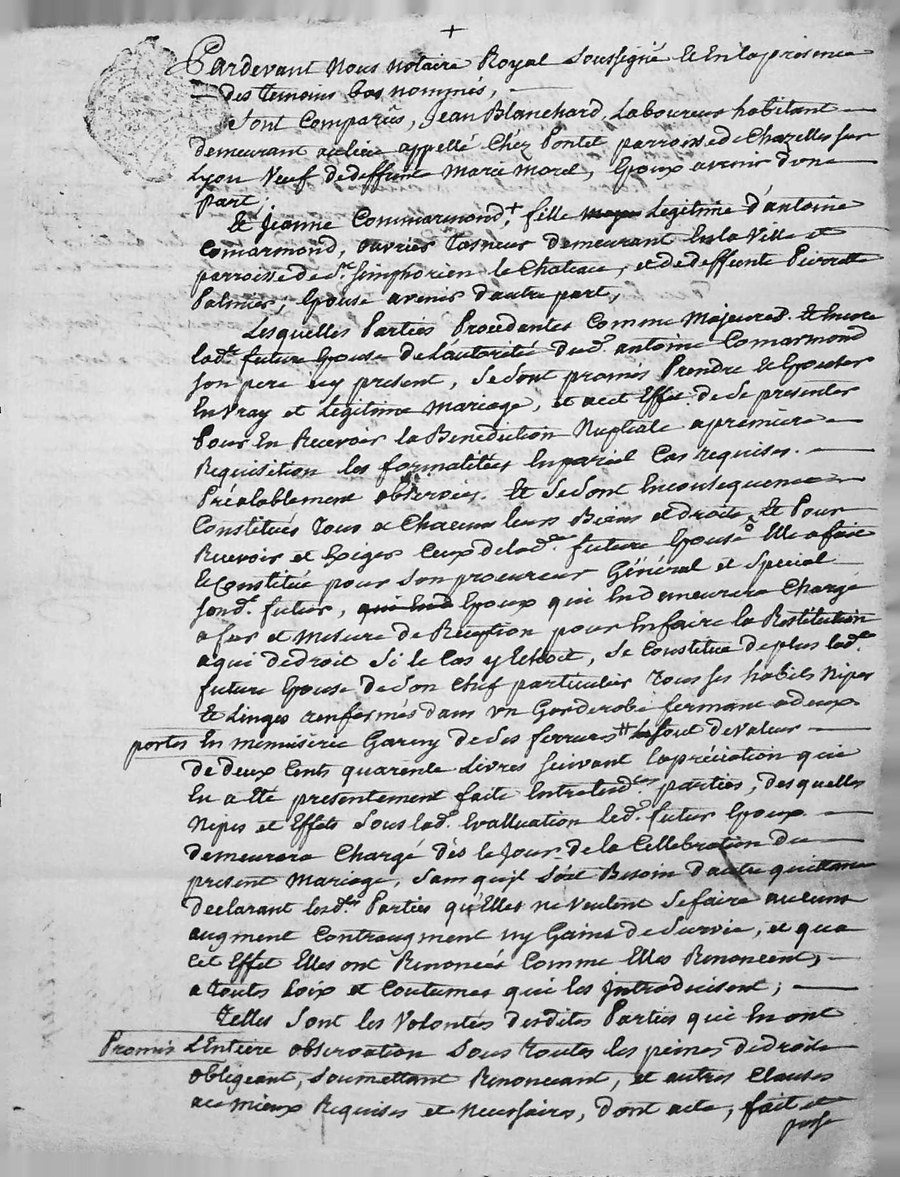 +
Pardevant Nous Notaire Royal Soussigné & En la presence
des temoins bas nommés,
Sont Comparus, Jean Blanchard, Laboureur habitant
demeurant au lieu appellé Chéz Pontet parroisse de Chazelles sur
Lyon Veuf de deffunte Marie Morel, Epoux avenir d'une
part;
Et Jeanne Commarmond,+ fille Legitime d'antoine
Comarmond, ouvrier Taneur demeurant En la Ville et
parroisse de St. Simphorien le Chateau, et de deffeunte Pierrette
Palmier, Epouse avenir d'autre part,
Lesquelles Parties Procedantes Comme Majeures. & Encore
lade. future Epouse de L'autorité dud. antoine Comarmond
son pere icy present, se sont promis Prendre & Epouser
En Vray et Legitime Mariage, et a cet Effet de Se presenter
Pour En Recevoir la Benediction Nuptiale a premiere
Requisition les formalitées En pareil Cas requises.
Préalablement observées. Et se sont En consequence
Constitués Tous & Chacuns leurs Biens et droits, Et Pour
Recevoir et Exiger Ceux de lade. future Epouse Elle a fait
& Constitué pour Son procureur Général et Special
sond. futur, qui End Epoux qui En demeurera Chargé
a fur et Mesure de Reception pour En faire la Restitution
a qui de droit Si le Cas y Echoit, Se Constitue de plus lade.
future Epouse de Son Chef particulier Tous ses habits Nipes
& Linges renfermés dans un Garderobe fermant a deux
portes En menuiserie Garny de Ses ferrures # Le tout de Valeur
de deux Cents quarente Livres suivant L'apréciation qui
En a Eté presentement faite Entre lesd. parties, desquelles
Nipes et Effets Sous lad. Evalluation led. futur Epoux
demeurera Chargé dès le Jour de la Cellebration du
present Mariage, Sans quil Soit Besoin d'autre quittance
declarant lesdes. Parties qu'Elles ne Veulent Se faire aucuns
augment Contraugment ny Gains de Survie, et qua
cet Effet Elles ont Renoncées Comme Elles Renoncent,
a toutes Loix et Coutumes qui les Introduisent;
Telles Sont les Volontés desdites Parties qui En ont
Promis L'Entière observation Sous Toutes les peines de droit
obligeant, Soumettant Renoncant, et autres Clauses
au mieux Requises et Necessaires, dont acte, fait et
passé